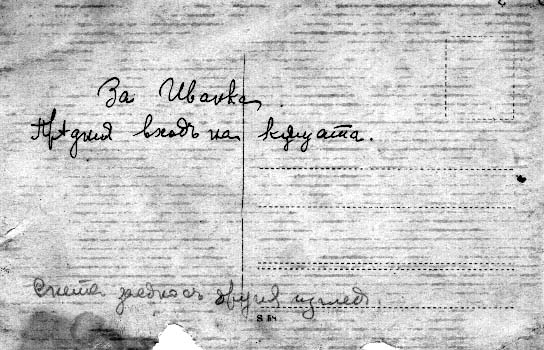 За Иванка,
Прѣдния входъ на кѫщата.
Снета заедно съ другия изгледъ.